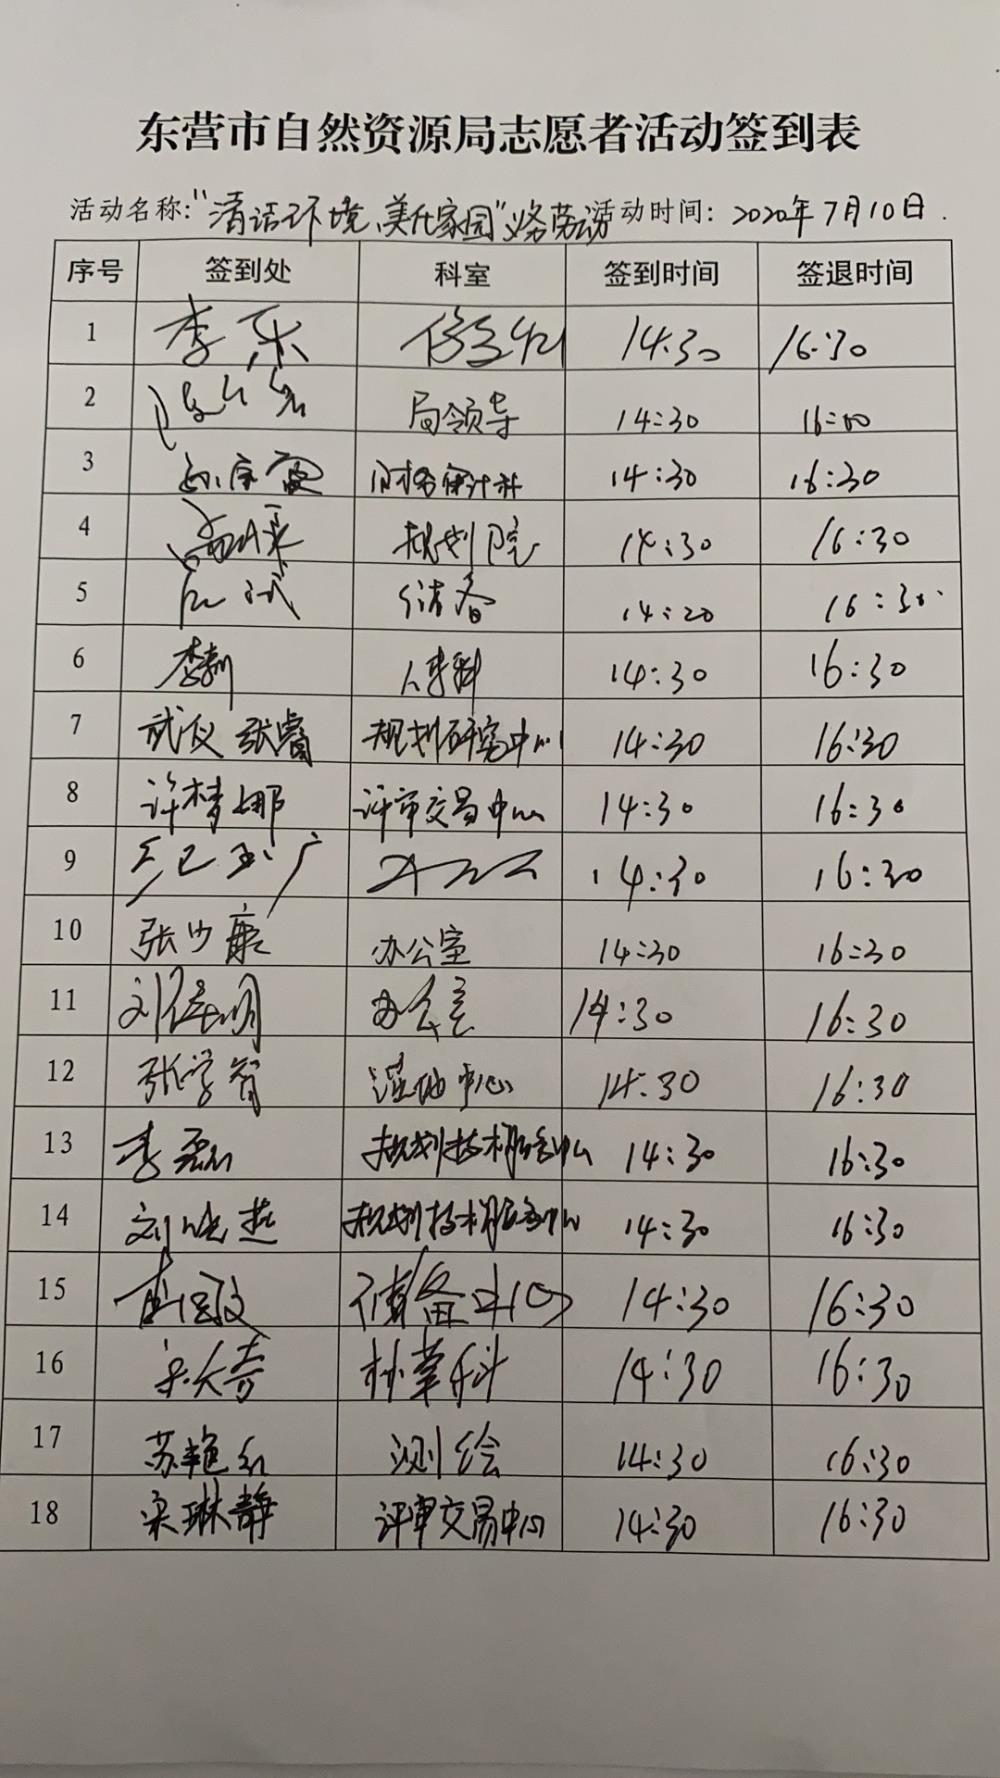 东营市自然资源局志愿者活动签到表
活动名称:"清洁环境、美化家园"义务劳动 活动时间: 2020年7月10日.
序号 签到处 科室 签到时间 签退时间
1 李乐 14:30 16:30
2 局领导 14:30 16:00
3 财务审计科 14:30 16:30
4 规划院 14:30 16:30
5 储备 14:20 16:30
6 李 人事科 14:30 16:30
7 武仪 张睿 规划研究中心 14:30 16:30
8 许梦娜 评审交易中心 14:30 16:30
9 14:30 16:30
10 张少康 办公室 14:30 16:30
11 刘明 办公室 14:30 16:30
12 张学智 湿地中心 14:30 16:30
13 李磊 规划技术服务中心 14:30 16:30
14 刘晓燕 规划技术服务中心 14:30 16:30
15 储备中心 14:30 16:30
16 林草科 14:30 16:30
17 苏艳红 测绘 14:30 16:30
18 梁琳静 评审交易中心 14:30 16:30